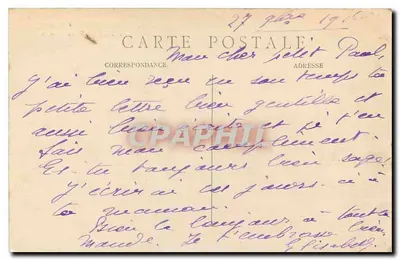 27 9bre 19
CARTE POSTALE
CORRESPONDANCE ADRESSE
Mon cher petit Paul,
J'ai bien reçu en son temps ta
petite lettre bien gentille et
aussi bien et je t'en
fais mon compliment.
Es-tu toujours bien sage?
J'écrirai ces jours-ci à
ta maman.
Bien le bonjour à tout le
monde. Je t'embrasse bien
Elisabeth